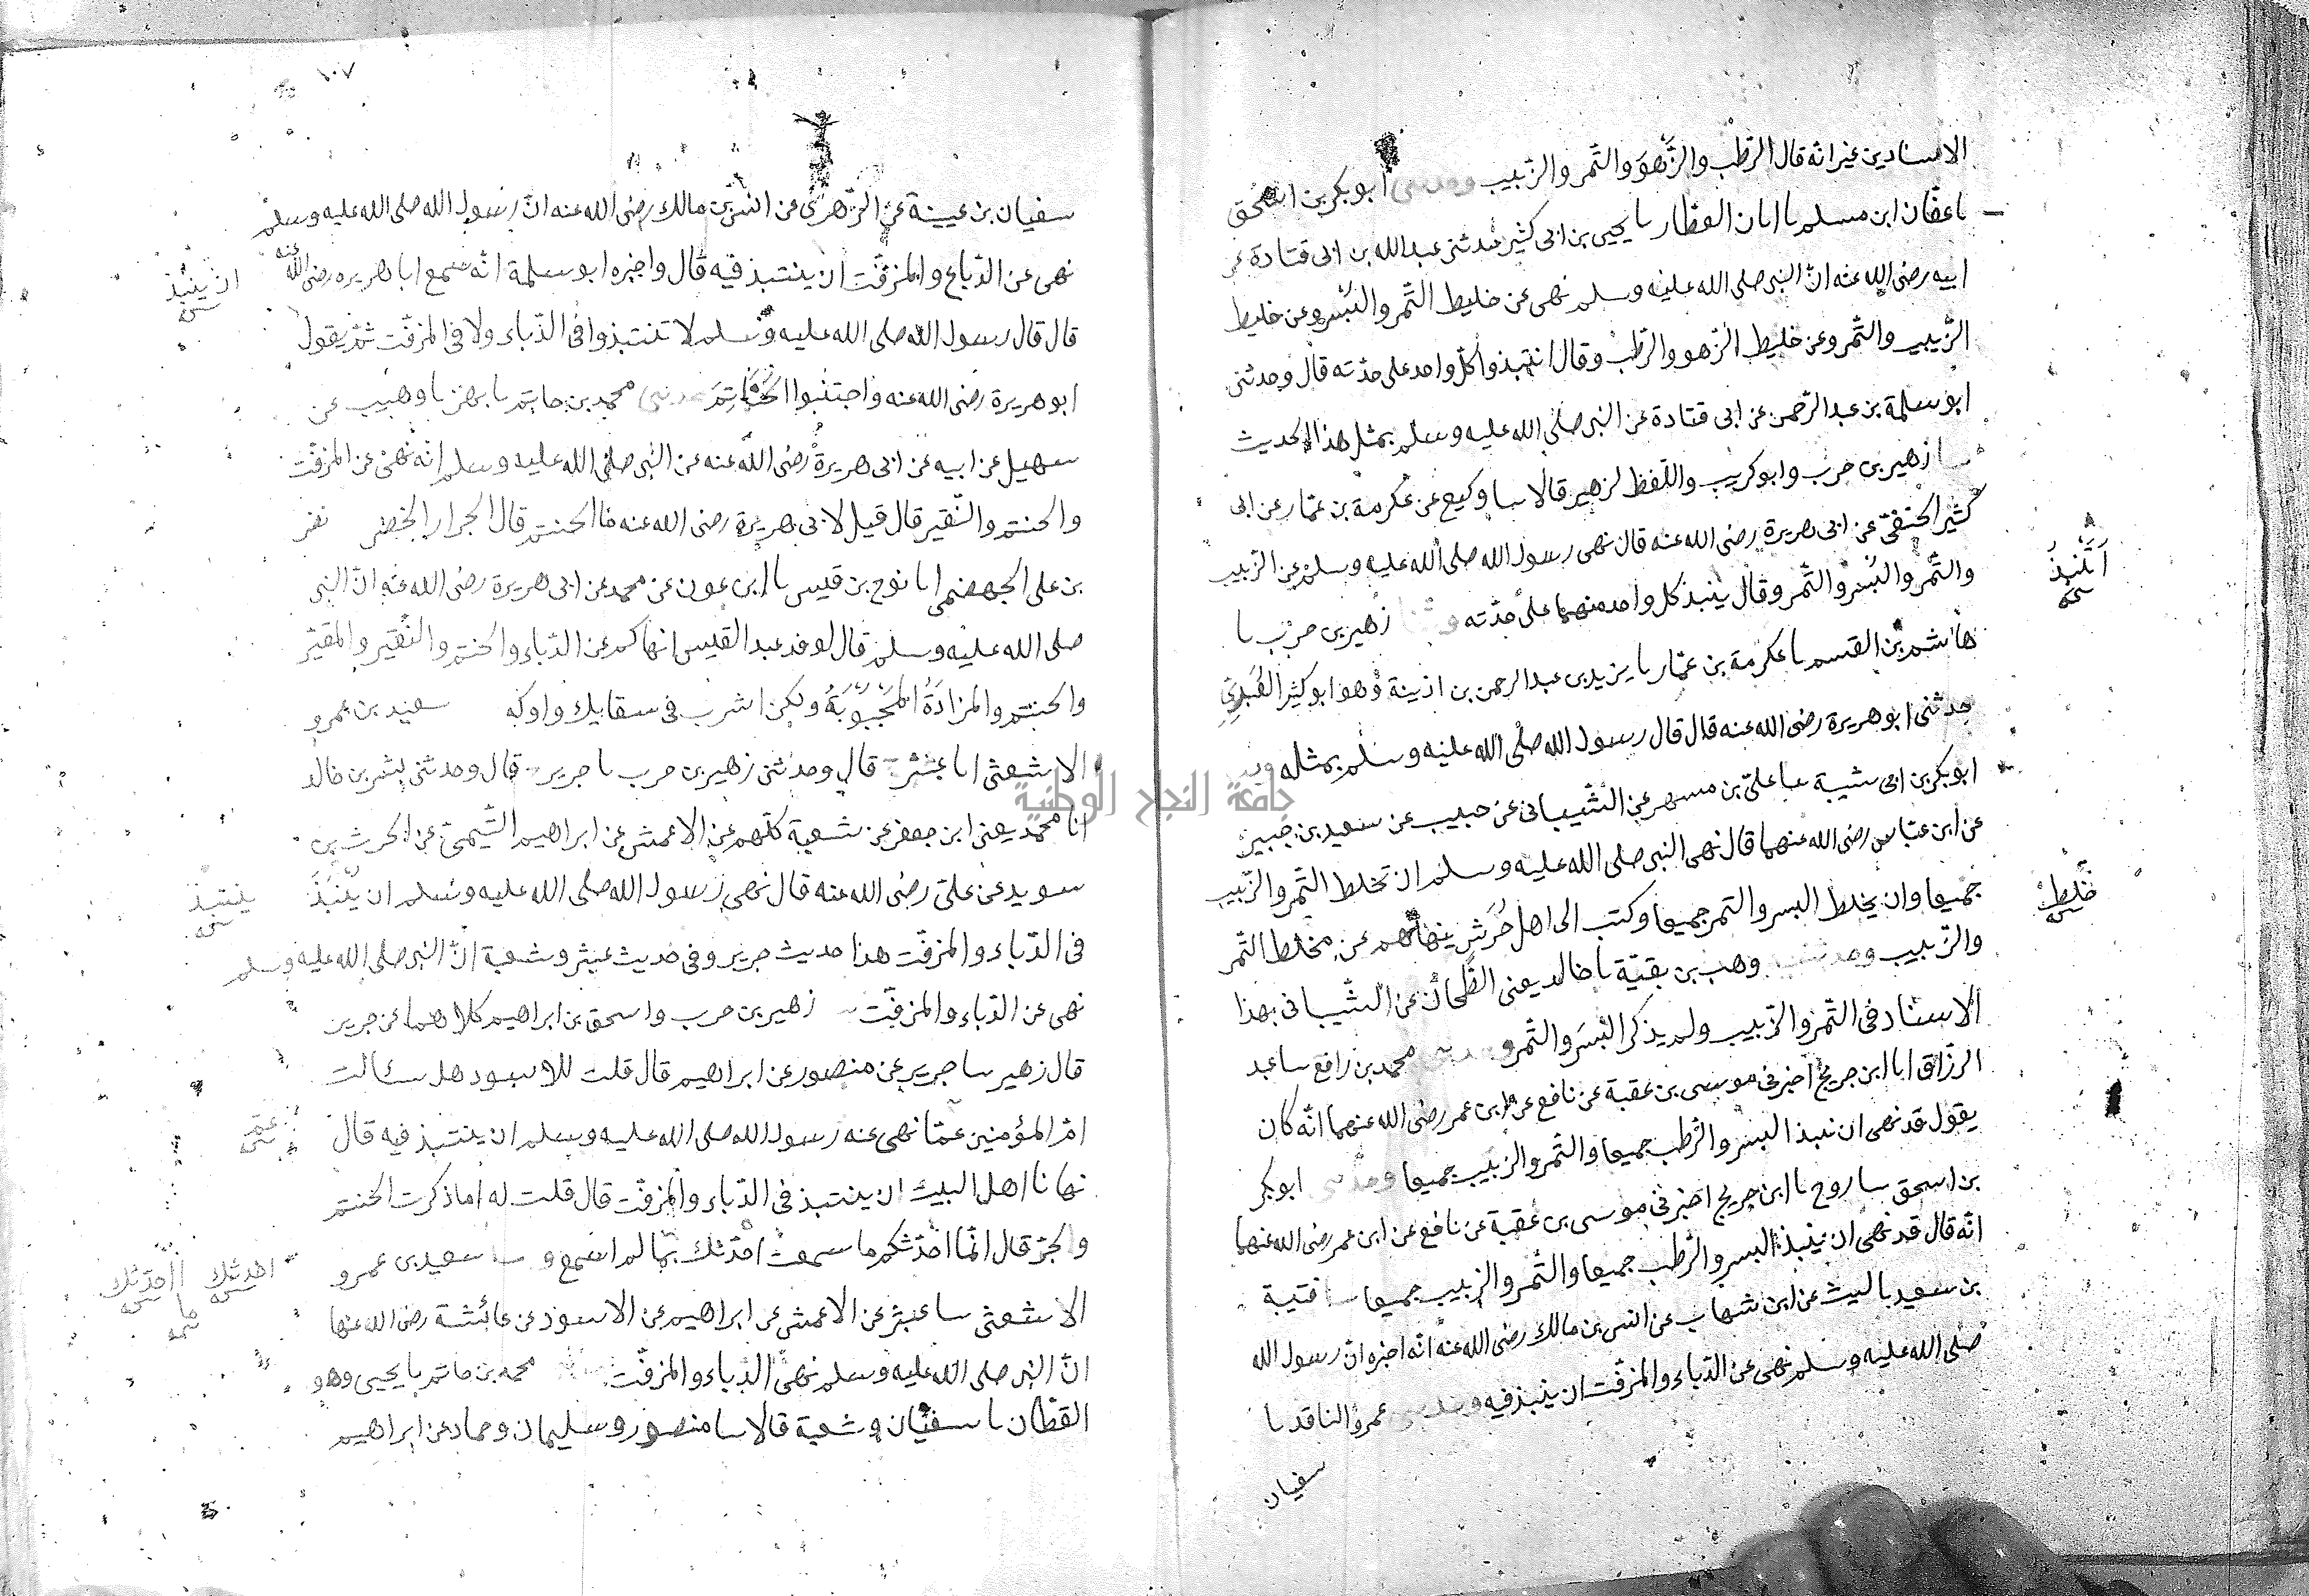 الاسنادين غير انه قال الرطب والزهو والتمر والزبيب وحدثنى ابو بكر بن اسحق
نا عفان ابن مسلم نا ابان العطار نا يحيى بن ابى كثير حدثنى عبدالله بن ابى قتادة عن
ابيه رضى الله عنه انّ النبى صلى الله عليه وسلم نهى عن خليط التمر والبسر وعن خليط
الزبيب والتمر وعن خليط الزهو والرطب وقال انتبذوا كل واحد على حدته قال وحدثنى
ابو سلمة بن عبد الرحمن عن ابى قتادة عن النبى صلى الله عليه وسلم بمثل هذا الحديث
نا زهير بن حرب وابو كريب واللفظ لزهير قالا سا وكيع عن عكرمة بن عمار عن ابى
كثير الحنفى عن ابى هريرة رضى الله عنه قال نهى رسول الله صلى الله عليه وسلم عن الزبيب
والتمر والبسر والتمر وقال ينبذ كل واحد منهما على حدته وثنا زهير بن حرب نا
هاشم بن القسم نا عكرمة بن عمار نا يزيد بن عبد الرحمن بن اذينة وهو ابو كثير الغبرى
حدثنى ابو هريرة رضى الله عنه قال قال رسول الله صلى الله عليه وسلم بمثله
ابو بكر بن ابى شيبة نا على بن مسهر عن الشيبانى عن حبيب عن سعيد بن جبير
عن ابن عباس رضى الله عنهما قال نهى النبى صلى الله عليه وسلم ان تخلط التمر والزبيب
جميعا وان يخلط البسر والتمر جميعا وكتب الى اهل جرش ينهاهم عن مخلط التمر
والزبيب وحدثنيه وهب بن بقية نا خالد يعنى الطحان عن الشيبانى بهذا
الاسناد فى التمر والزبيب ولم يذكر البسر والتمر وحدثنى محمد بن رافع سا عبد
الرزاق انا ابن جريج اخبرنى موسى بن عقبة عن نافع عن ابن عمر رضى الله عنهما انه كان
يقول قد نهى ان نبذ البسر والرطب جميعا والتمر والزبيب جميعا وحدثنى ابو بكر
بن اسحق سا روح نا ابن جريج اخبرنى موسى بن عقبة عن نافع عن ابن عمر رضى الله عنهما
انه قال قد نهى ان ينبذ البسر والرطب جميعا والتمر والزبيب جميعا سا قتيبة
بن سعيد نا ليث عن ابن شهاب عن انس بن مالك رضى الله عنه انه اخبره ان رسول الله
صلى الله عليه وسلم نهى عن الدباء والمزفت ان ينبذ فيه وحدثنى عمرو الناقد نا
سفيان
انتبذ
خليط
١٠٧
سفيان بن عيينة عن الزهرى عن انس بن مالك رضى الله عنه انّ رسول الله صلى الله عليه وسلم
نهى عن الدباء والمزفت ان ينتبذ فيه قال واخبره ابو سلمة انه سمع ابا هريرة رضى الله عنه
قال قال رسول الله صلى الله عليه وسلم لا تنتبذوا فى الدباء ولا فى المزفت ثم يقول
ابو هريرة رضى الله عنه واجتنبوا الحناتم حدثنى محمد بن حاتم نا بهز نا وهيب عن
سهيل عن ابيه عن ابى هريرة رضى الله عنه عن النبى صلى الله عليه وسلم انه نهى عن المزفت
والحنتم والنقير قال قيل لابى هريرة رضى الله عنه ما الحنتم قال الجرار الخضر نصر
بن على الجهضمى انا نوح بن قيس نا ابن عون عن محمد عن ابى هريرة رضى الله عنه ان النبى
صلى الله عليه وسلم قال لوفد عبد القيس انهاكم عن الدباء والحنتم والنقير والمقير
والحنتم والمزادة المجبوبة ولكن اشرب فى سقايك واوكه سعيد بن عمرو
الاشعثى انا عبثر قال وحدثنى زهير بن حرب نا جرير قال وحدثنى بشر بن خالد
انا محمد يعنى ابن جعفر عن شعبة كلهم عن الاعمش عن ابراهيم التيمى عن الحرث بن
سويد عن على رضى الله عنه قال نهى رسول الله صلى الله عليه وسلم ان ينبذ
فى الدباء والمزفت هذا حديث جرير وفى حديث عبثر وشعبة انّ النبى صلى الله عليه وسلم
نهى عن الدباء والمزفت زهير بن حرب واسحق بن ابراهيم كلاهما عن جرير
قال زهير سا جرير عن منصور عن ابراهيم قال قلت للاسود هل سئالت
ام المؤمنين عمّا نهى عنه رسول الله صلى الله عليه وسلم ان ينتبذ فيه قال
نهانا اهل البيت ان ينتبذ فى الدباء والمزفت قال قلت له اما ذكرت الحنتم
والجر قال انما احدثكم ما سمعت احدثك بما لم اسمع وسا سعيد بن عمرو
الاشعثى سا عبثر عن الاعمش عن ابراهيم عن الاسود عن عائشة رضى الله عنها
انّ النبى صلى الله عليه وسلم نهى الدباء والمزفت محمد بن حاتم نا يحيى وهو
القطان نا سفيان وشعبة قالا سا منصور وسليمان وحماد عن ابراهيم
ان ينبذ
ينتبذ
عمّ
احدثك
ااحدثك
ما
جامعة النجاح الوطنية